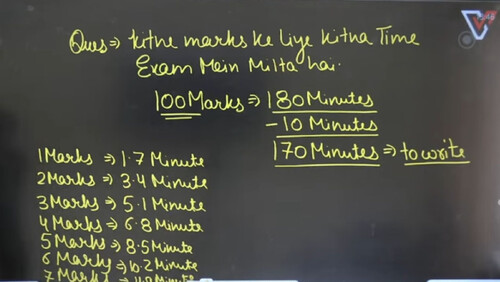 Ques => Kitne marks ke liye kitna Time
Exam Mein Milta hai.
100 Marks => 180 Minutes
- 10 Minutes
170 Minutes => to write
1 Marks => 1.7 Minute
2 Marks => 3.4 Minute
3 Marks => 5.1 Minute
4 Marks => 6.8 Minute
5 Marks => 8.5 Minute
6 Marks => 10.2 Minute
7 Marks => 11.9 Minute